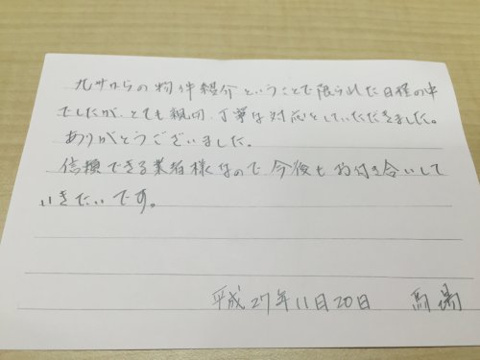 九州からの物件紹介ということで限られた日程の中
でしたが、とても親切、丁寧な対応をしていただきました。
ありがとうございました。
信頼できる業者様なので今後もお付き合いして
いきたいです。
平成27年11月20日 高場